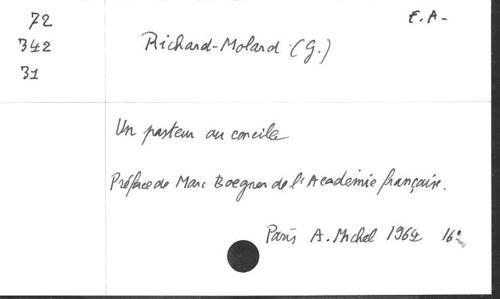 72
342
31
F.A-
Richard-Molard (G.)
Un pasteur au concile
Préface de Marc Boegner de l'Académie française.
Paris A. Michel 1964 16°